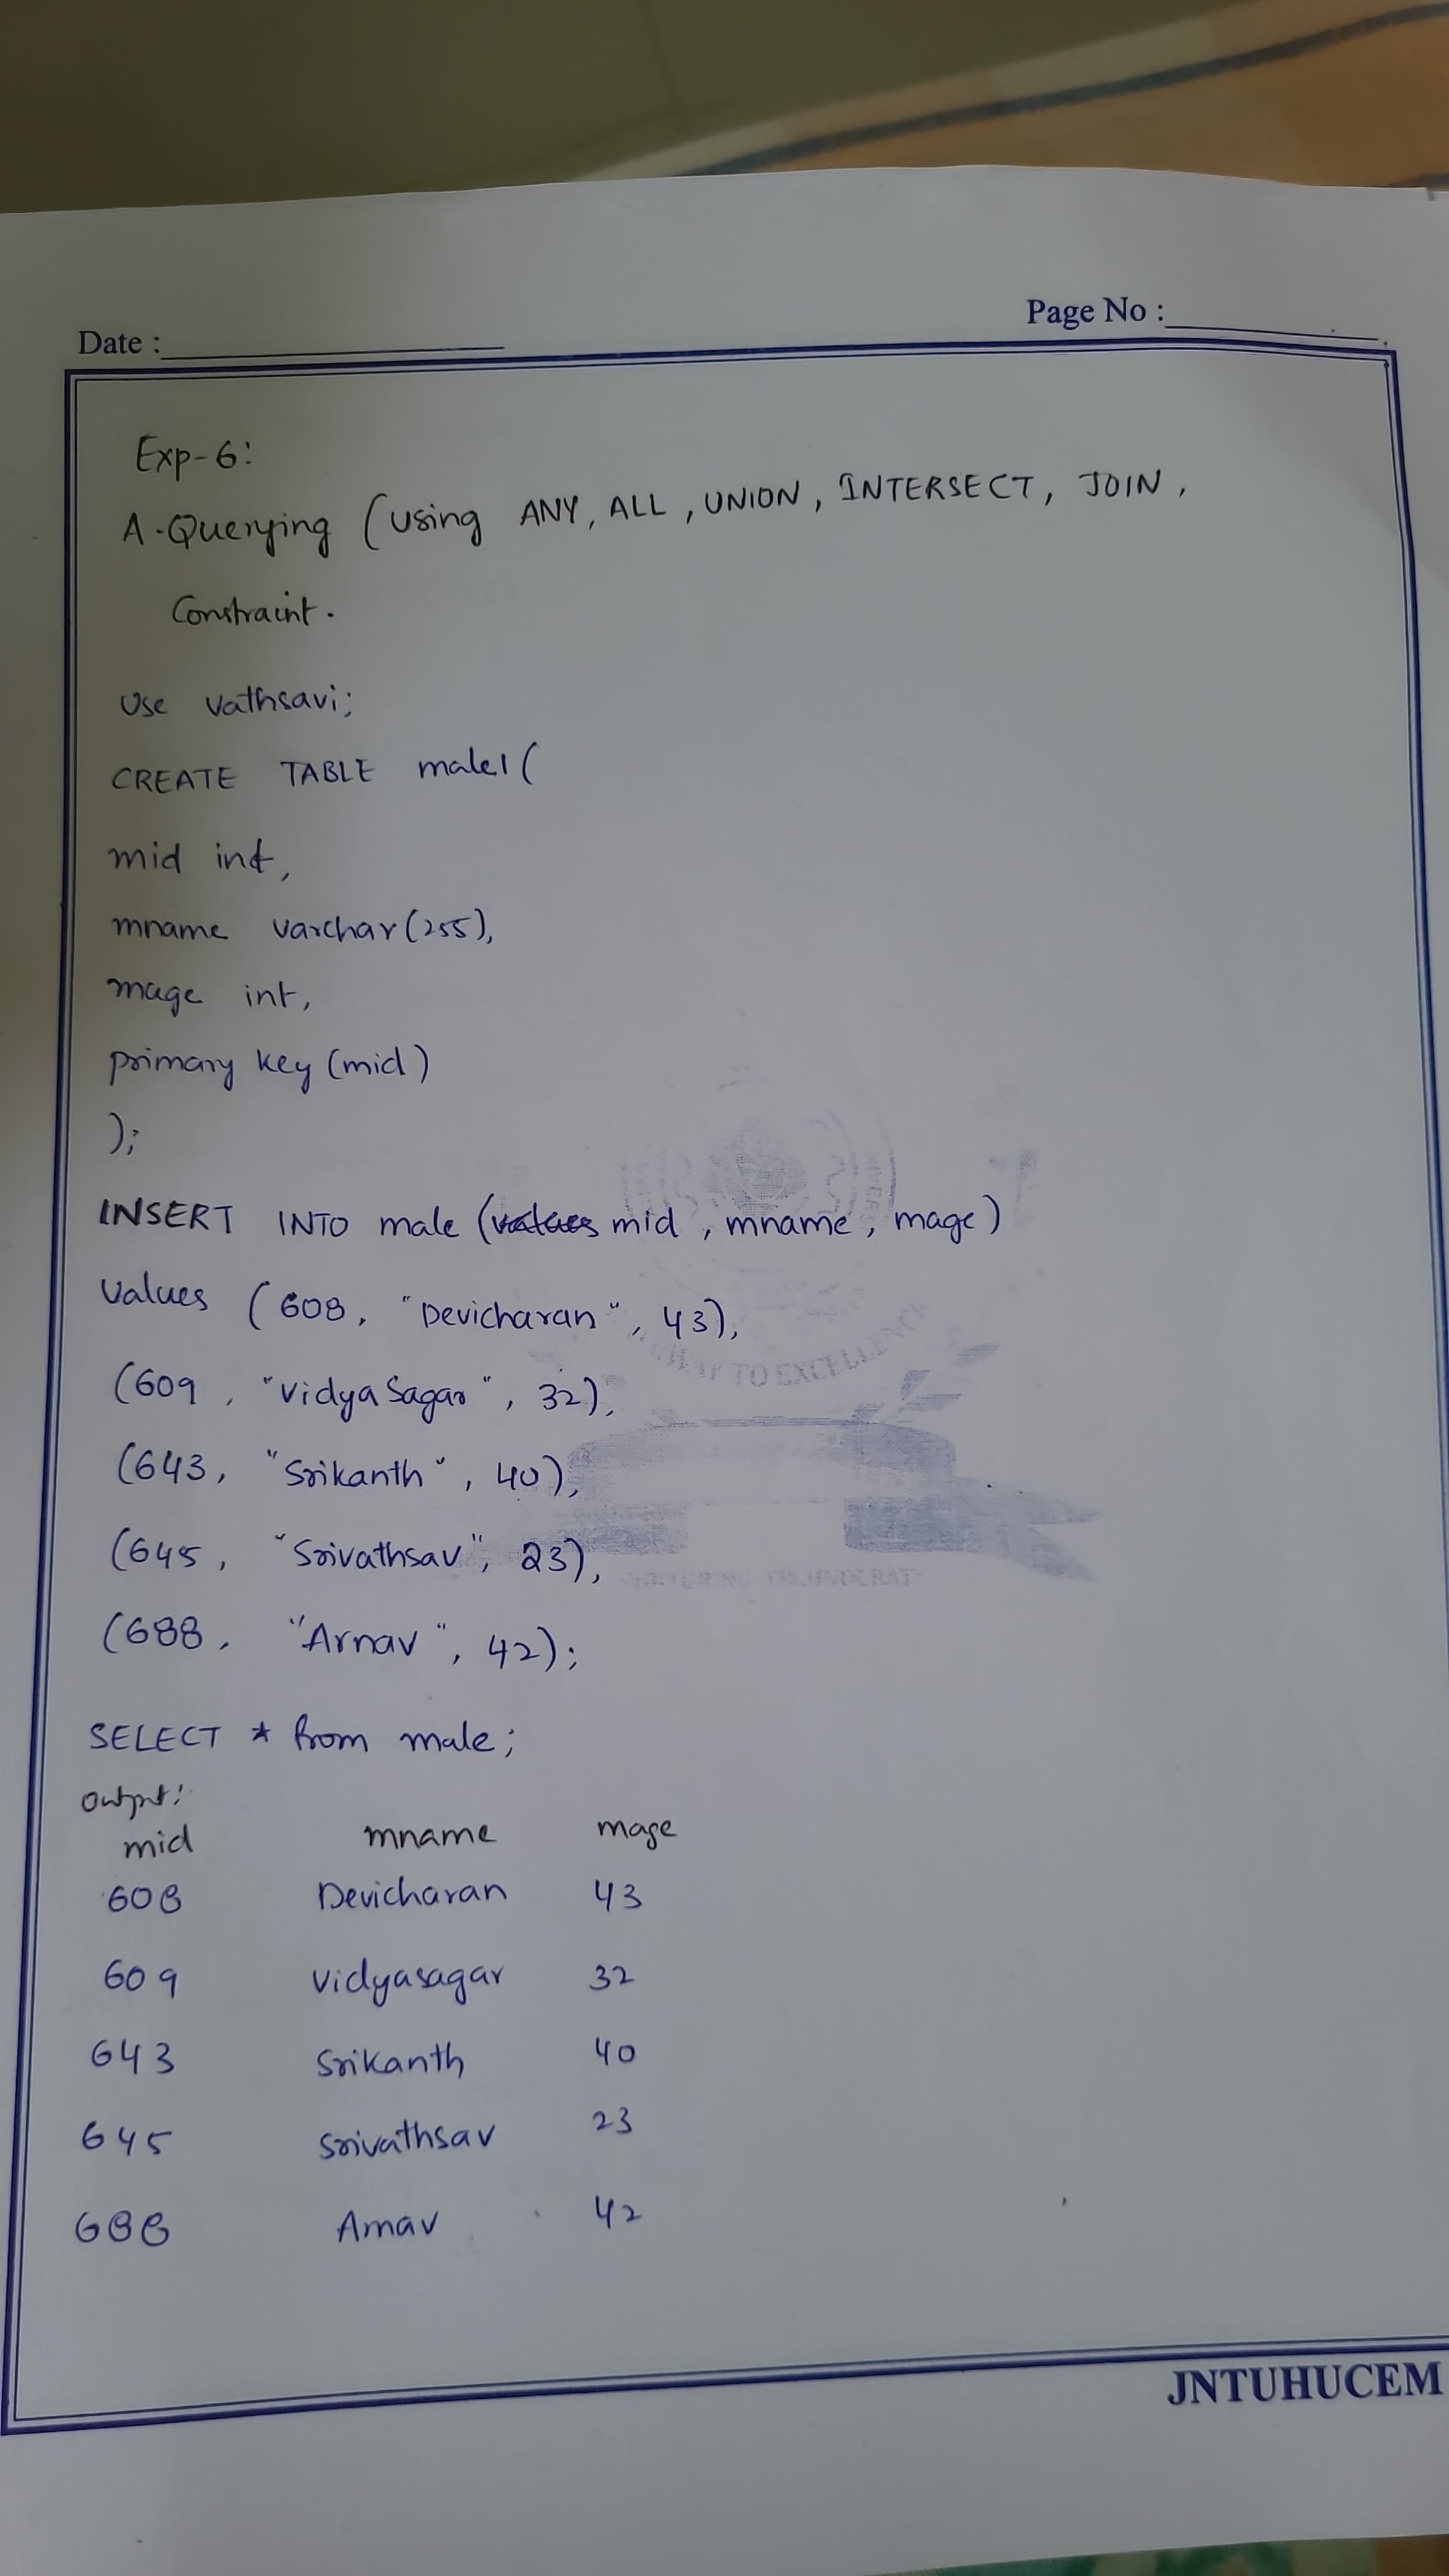 Date :
Page No :
Exp-6:
A-Querying (using ANY, ALL, UNION, INTERSECT, JOIN,
Constraint.
Use vathsavi;
CREATE TABLE male1(
mid int,
mname varchar(255),
mage int,
primary key (mid)
);
INSERT INTO male (values mid, mname, mage)
values (608, "Devicharan", 43),
(609, "Vidya Sagar", 32),
(643, "Srikanth", 40),
(645, "Srivathsav", 23),
(688, "Arnav", 42);
SELECT * from male;
output:
mid mname mage
608 Devicharan 43
609 vidyasagar 32
643 Srikanth 40
645 srivathsav 23
688 Arnav 42
JNTUHUCEM